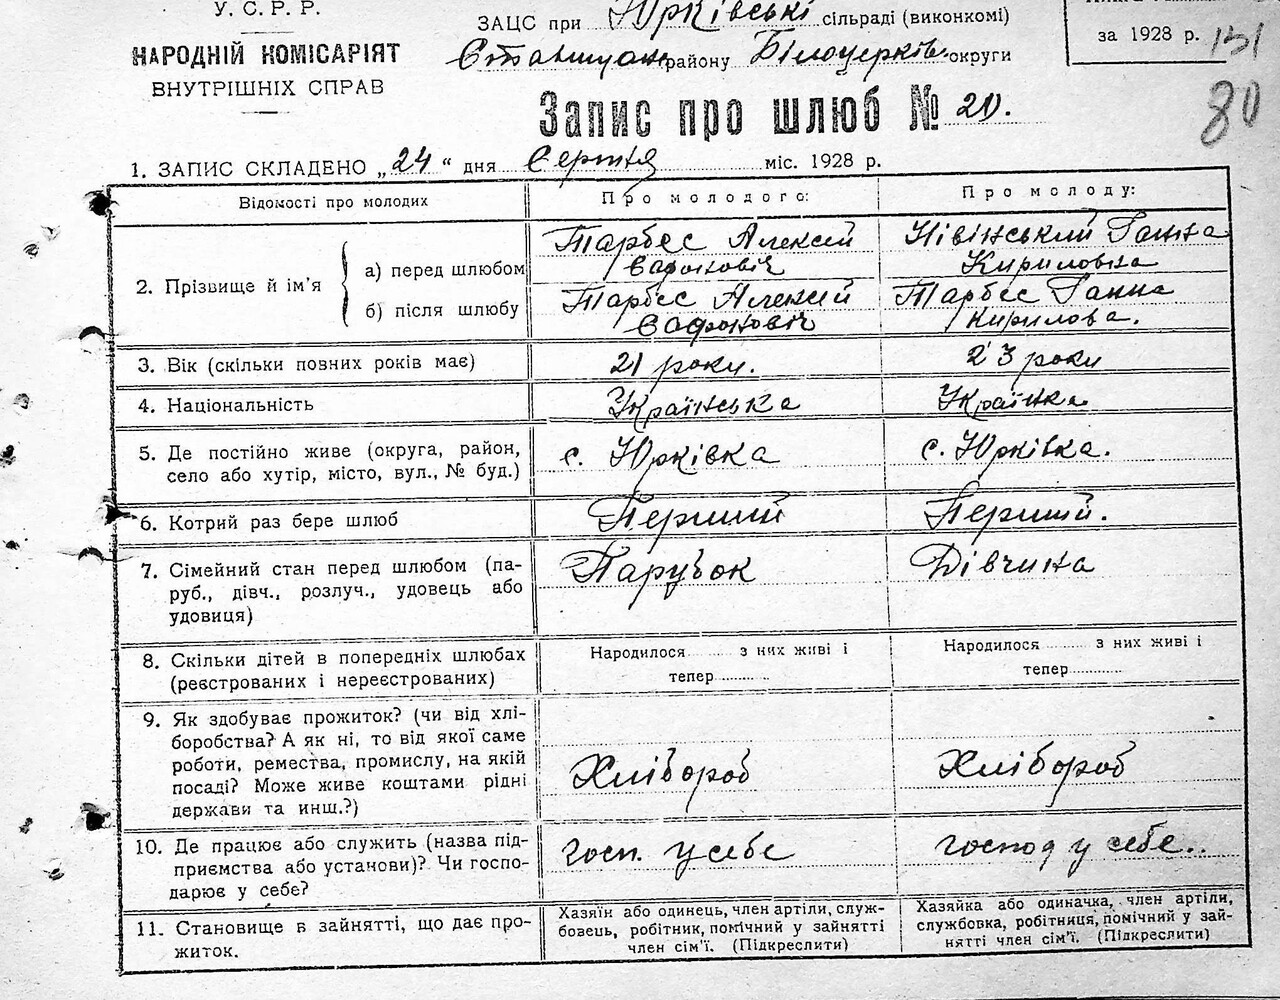 У.С.Р.Р.
НАРОДНІЙ КОМІСАРІЯТ
ВНУТРІШНІХ СПРАВ
ЗАЦС при Юрківські сільраді (виконкомі)
району Білоцерків. округи
за 1928 р. 151
80
Запис про шлюб № 20.
1. ЗАПИС СКЛАДЕНО „24“ дня Серпня міс. 1928 р.
Відомості про молодих
Про молодого:
Про молоду:
2. Прізвище й ім'я
а) перед шлюбом
Тарбес Алексей
Сафонович
Нівінський Ганна
Кириловна
б) після шлюбу
Тарбес Алексей
Сафонович
Тарбес Ганна
Кирилова.
3. Вік (скільки повних років має)
21 роки.
23 роки
4. Національність
Українська
Українка
5. Де постійно живе (округа, район,
село або хутір, місто, вул., № буд.)
с. Юрківка
с. Юрківка.
6. Котрий раз бере шлюб
Перший
Перший.
7. Сімейний стан перед шлюбом (па-
руб., дівч., розлуч., удовець або
удовиця)
Парубок
Дівчина
8. Скільки дітей в попередніх шлюбах
(реєстрованих і нереєстрованих)
Народилося ........ з них живі і
тепер ............
Народилося ........ з них живі і
тепер ............
9. Як здобуває прожиток? (чи від хлі-
боробства? А як ні, то від якої саме
роботи, ремества, промислу, на якій
посаді? Може живе коштами рідні
держави та инш.?)
Хлібороб
Хлібороб
10. Де працює або служить (назва під-
приємства або установи)? Чи госпо-
дарює у себе?
госп. у себе
господ у себе..
11. Становище в зайнятті, що дає про-
житок.
Хазяїн або одинець, член артіли, служ-
бовець, робітник, помічний у зайнятті
член сім'ї. (Підкреслити)
Хазяйка або одиначка, член артіли,
службовка, робітниця, помічний у зай-
нятті член сім'ї. (Підкреслити)